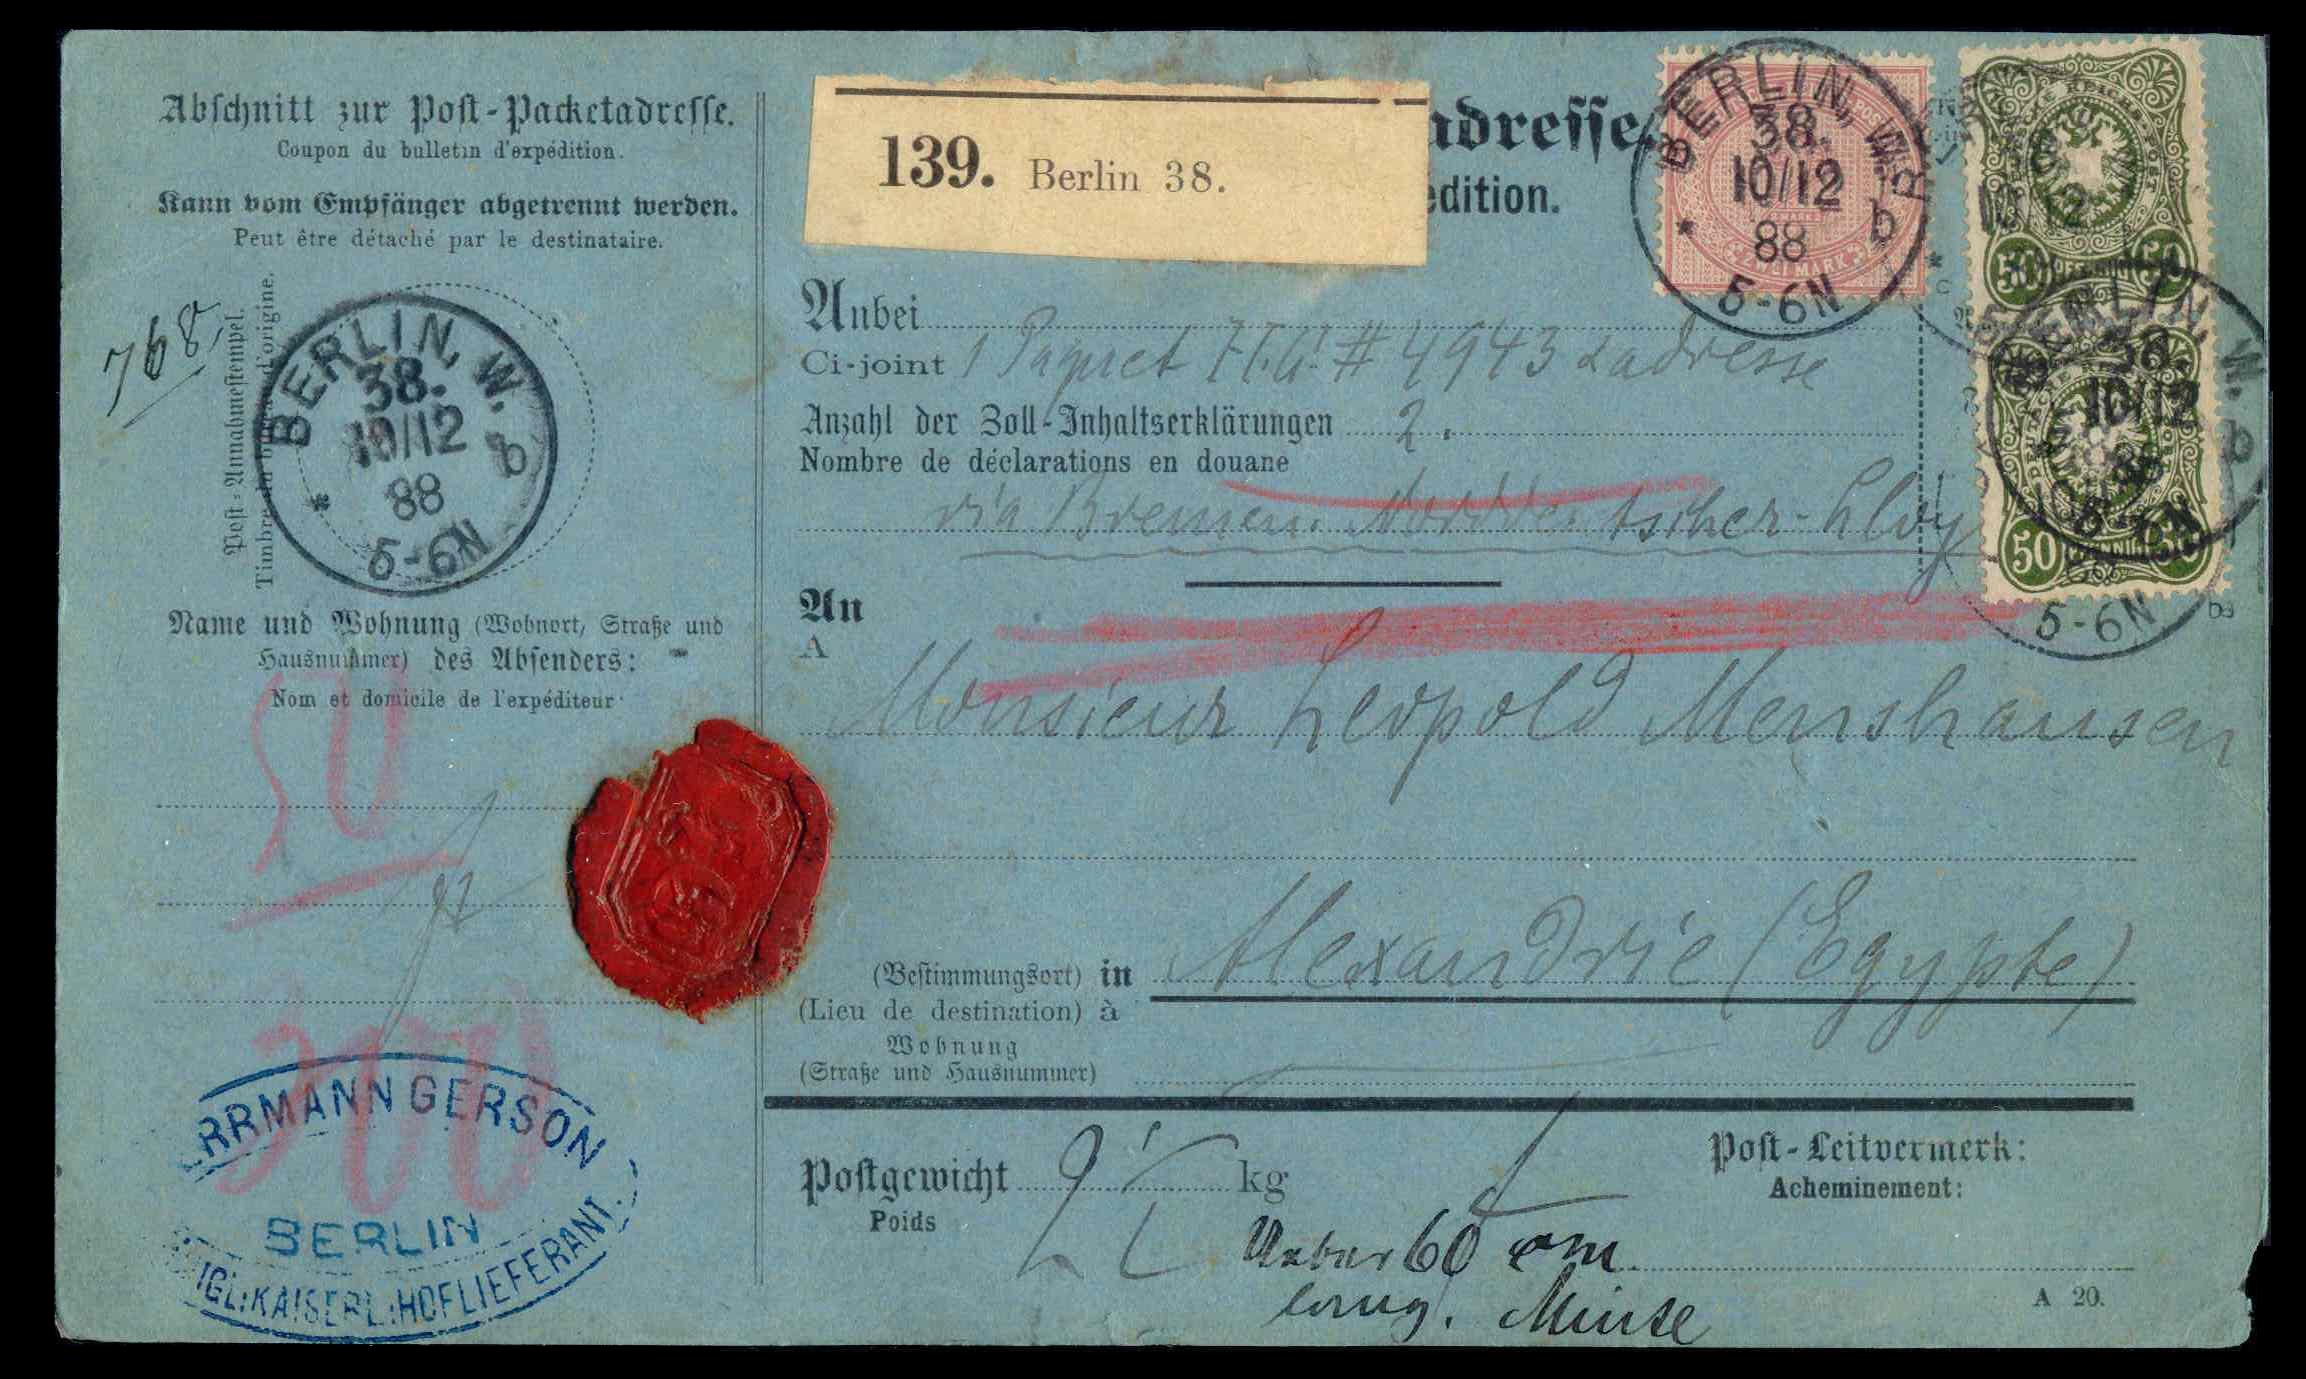 Abschnitt zur Post-Packetadresse.
Coupon du bulletin d'expédition.
Kann vom Empfänger abgetrennt werden.
Peut être détaché par le destinataire.
768
Post-Annahmestempel.
Timbre du bureau d'origine.
BERLIN, W.
38.
10/12
88
5-6N
* b
Name und Wohnung (Wohnort, Straße und
Hausnummer) des Absenders:
Nom et domicile de l'expéditeur
50
300
RRMANN GERSON
BERLIN
IGL:KAISERL:HOFLIEFERANT.
139. Berlin 38.
adresse.
edition.
BERLIN, W.
38.
10/12
88
5-6N
* b
ZWEI MARK
50 PFENNIG 50
BERLIN, W.
38.
10/12
88
5-6N
b
50 PFENNIG 50
5-6N
Anbei
Ci-joint 1 Paquet # 4943 adresse
Anzahl der Zoll-Inhaltserklärungen 2.
Nombre de déclarations en douane
via Bremen. Norddeutscher-Lloyd
An
A
Monsieur Leopold Menshausen
(Bestimmungsort) in Alexandrie (Egypte)
(Lieu de destination) à
Wohnung
(Straße und Hausnummer)
Postgewicht kg
Poids
Post-Leitvermerk:
Acheminement:
Ueber 60 cm
lang.
A 20.